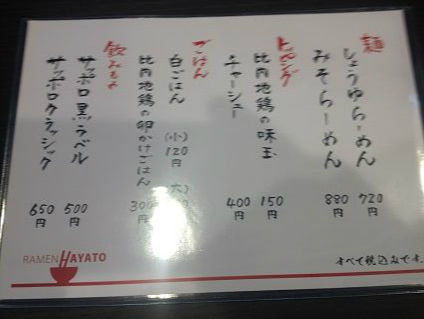 麺
しょうゆらーめん 720円
みそらーめん 880円
トッピング
比内地鶏の味玉 150円
チャーシュー 400円
ごはん
白ごはん (小)120円 (大)
比内地鶏の卵かけごはん 300円
飲みもの
サッポロ黒ラベル 500円
サッポロクラッシック 650円
すべて税込みです。
RAMEN HAYATO